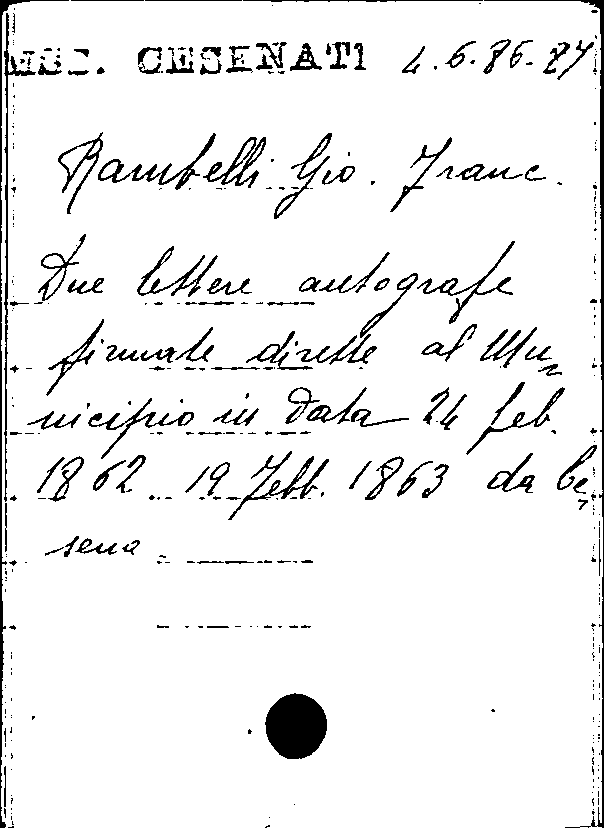 MSS. CESENATI 4.6.86-87
Rambelli Gio. Franc.
Due lettere autografe
firmate dirette al Mu=
nicipio in data 24 feb.
1862 19 Febb. 1863 da Ce=
sena